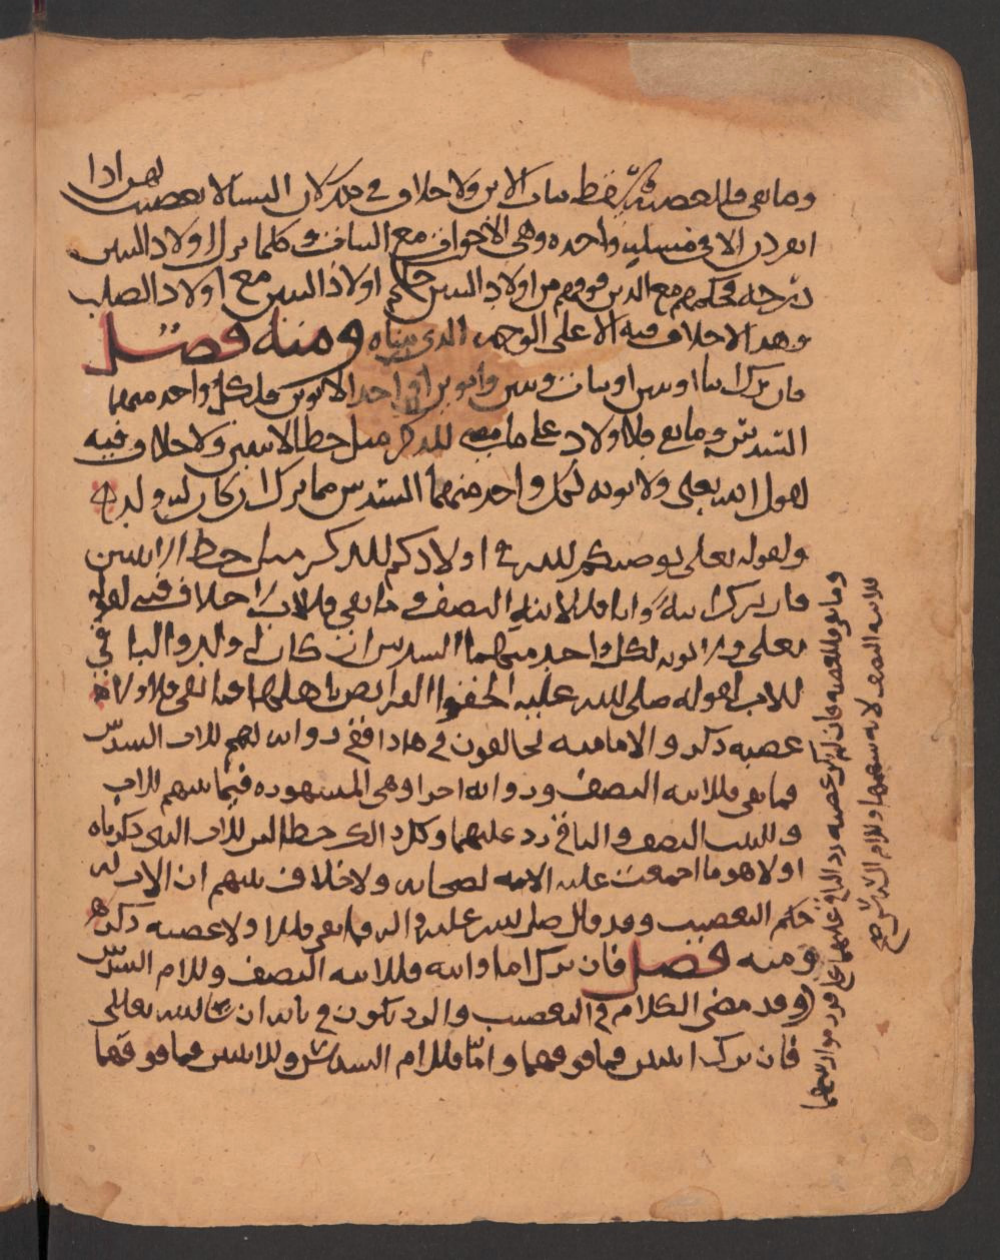 وما بقي فللعصبة وسقط بنات الابن ولا خلاف في ذلك لان النسا لا يعصبن اذا
انفردن الا في مسلة واحدة وهي الاخوات مع البنات وكلما نزل اولاد البنين
درجة فحكمهم مع الذين فوقهم من اولاد البنين حكم اولاد البنين مع اولاد الصلب
وهذا لا خلاف فيه الا على الوجه الذي بيناه ومنه فصل
فان ترك ابنا او بنين او بنات وبنين وابوين او احد الابوين فلكل واحد منهما
السدس وما بقي فللاولاد على ما للذكر مثل حظ الانثيين ولا خلاف فيه
لقول الله تعلى ولابويه لكل واحد منهما السدس مما ترك ان كان له ولد
ولقوله تعلى يوصيكم الله في اولادكم للذكر مثل حظ الانثيين
فان ترك ابنة وابا فللابنة النصف وما بقي فللاب لا خلاف فيه لقوله
تعلى ولابويه لكل واحد منهما السدس ان كان له ولد والباقي
للاب لقوله صلى الله عليه الحقوا الفرايض باهلها فما بقي فلاولى
عصبة ذكر والامامية يخالفون في هذا فقد روانا لهم للاب السدس
وما بقي فللابنة النصف ورواية اخرى وهي المشهورة فيما بينهم للاب
وللبنت النصف والباقي رد عليهما وكل ذلك خطا للاب الذي ذكرناه
اولا هو ما اجمعت عليه الامة لصحابة ولا خلاف بينهم ان الاب له
حكم التعصيب وقد قال صلى الله عليه واله وما بقي فلاولا عصبة ذكر
ومنه فصل فان ترك اما وابنة فللابنة النصف وللام السدس
وقد مضى الكلام في التعصيب والرد يكون في بابه ان شا الله تعالى
فان ترك ابنتين فما فوقهما واما فللام السدس وللابنتين فما فوقهما
وما بقي فللعصبة فان لم يكن عصبة رد الباقي عليهما على قدر مواريثهما
للابنة النصف لانه سهمها وللام السدس صح